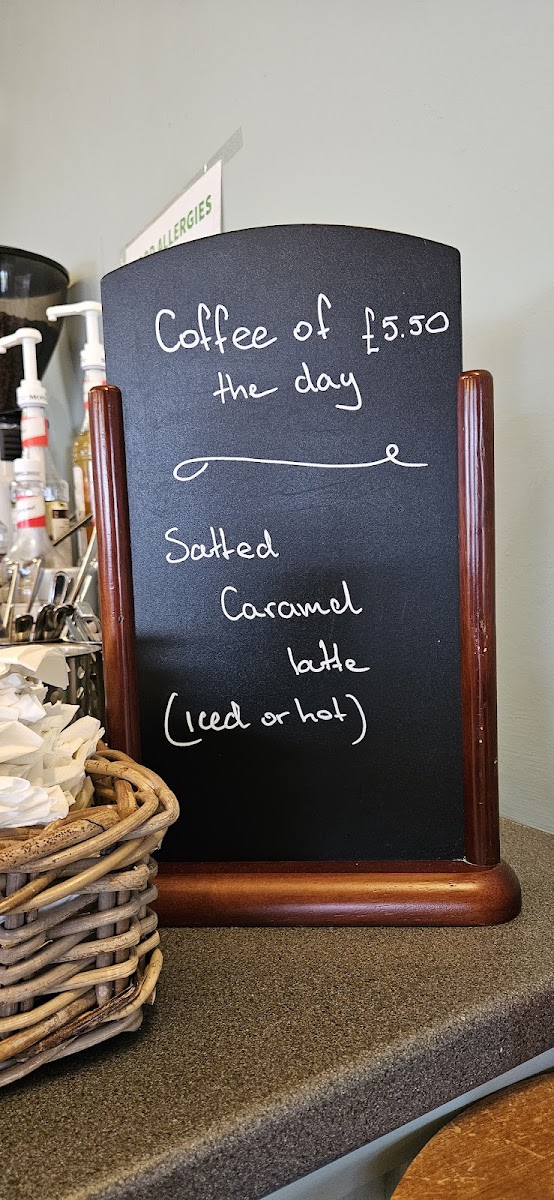 ALLERGIES
Coffee of £5.50
the day
Salted
Caramel
latte
(iced or hot)